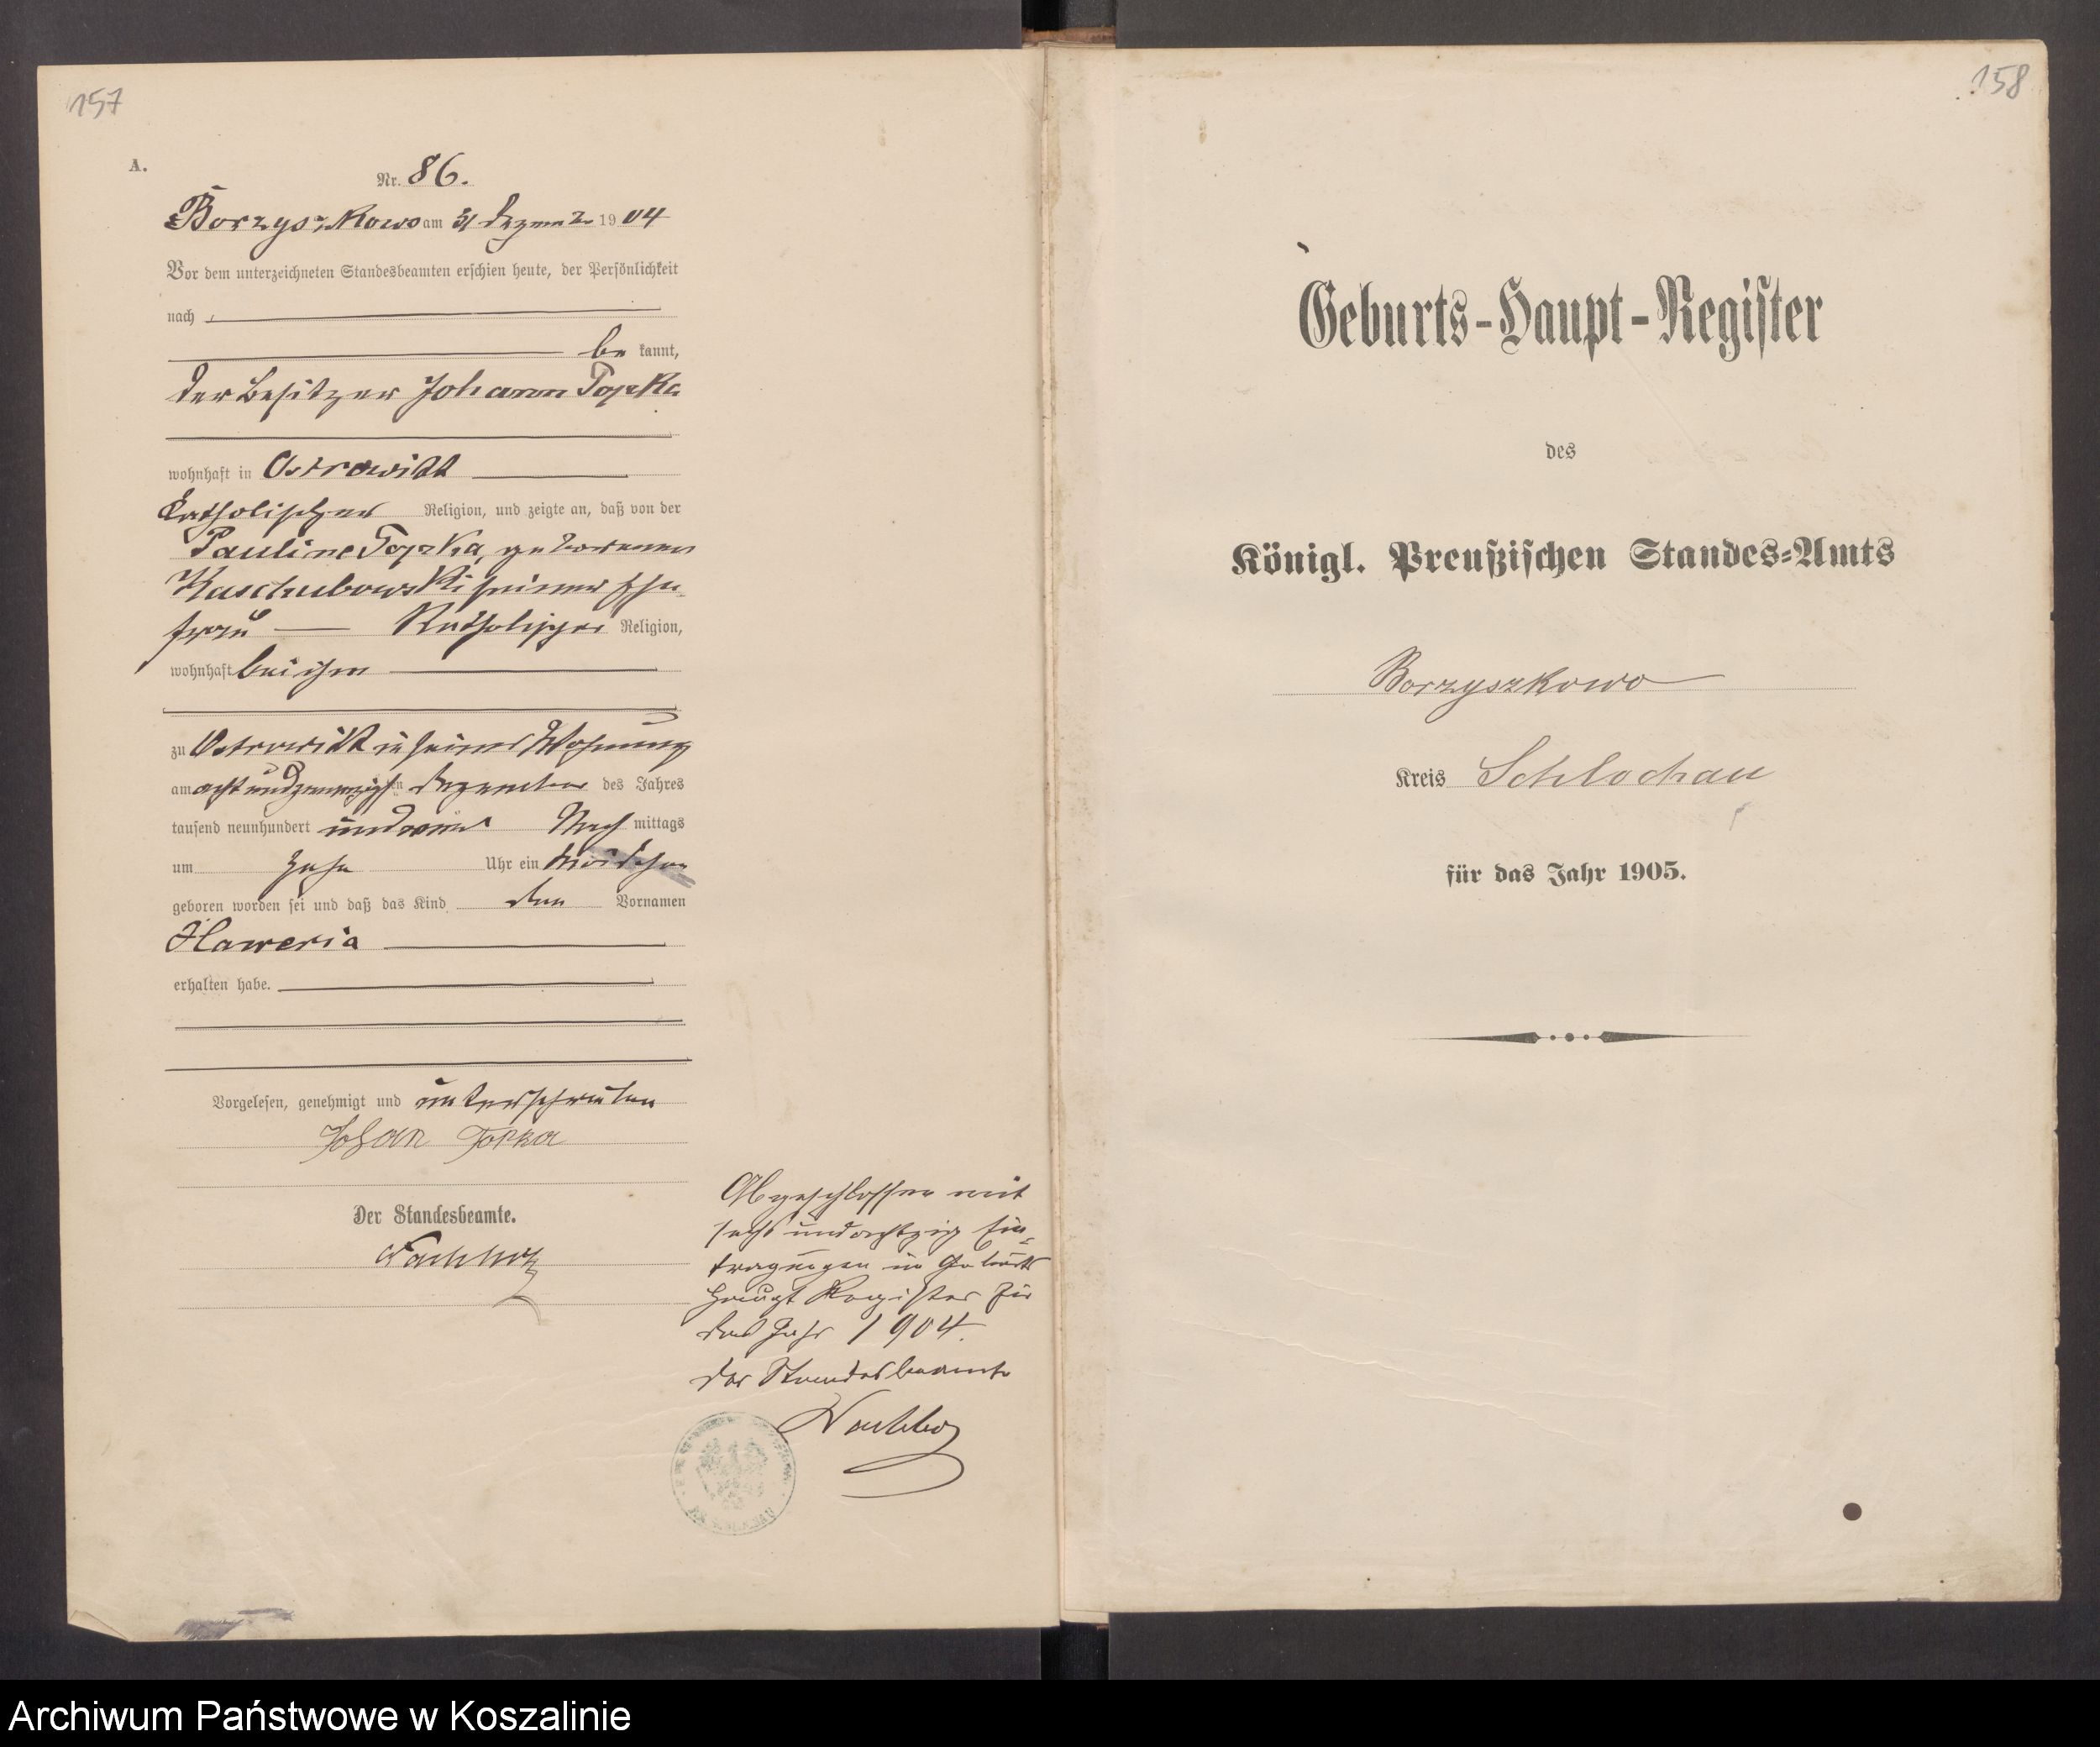 157
A.
Nr. 86.
Borzyszkowo am 31 Dezember 1904
Vor dem unterzeichneten Standesbeamten erschien heute, der Persönlichkeit
nach
be kannt,
der Besitzer Johann Topka
wohnhaft in Ostrowitt
katholischer Religion, und zeigte an, daß von der
Pauline Topka, geborenen
Kaschubowski seiner Ehe-
frau Katholischer Religion,
wohnhaft bei ihm
zu Ostrowitt in seiner Wohnung
am acht und zwanzigsten Dezember des Jahres
tausend neunhundert und vier Nach mittags
um zehn Uhr ein Mädchen
geboren worden sei und daß das Kind den Vornamen
erhalten habe.
Vorgelesen, genehmigt und unterschrieben
Johan Topka
Der Standesbeamte.
Abgeschlossen mit
sechs und achtzig Ein-
tragungen im Geburts
Haupt Register für
das Jahr 1904.
Der Standesbeamte
158
Geburts-Haupt-Register
des
Königl. Preußischen Standes-Amts
Borzyszkowo
Kreis Schlochau
für das Jahr 1905.
Archiwum Państwowe w Koszalinie